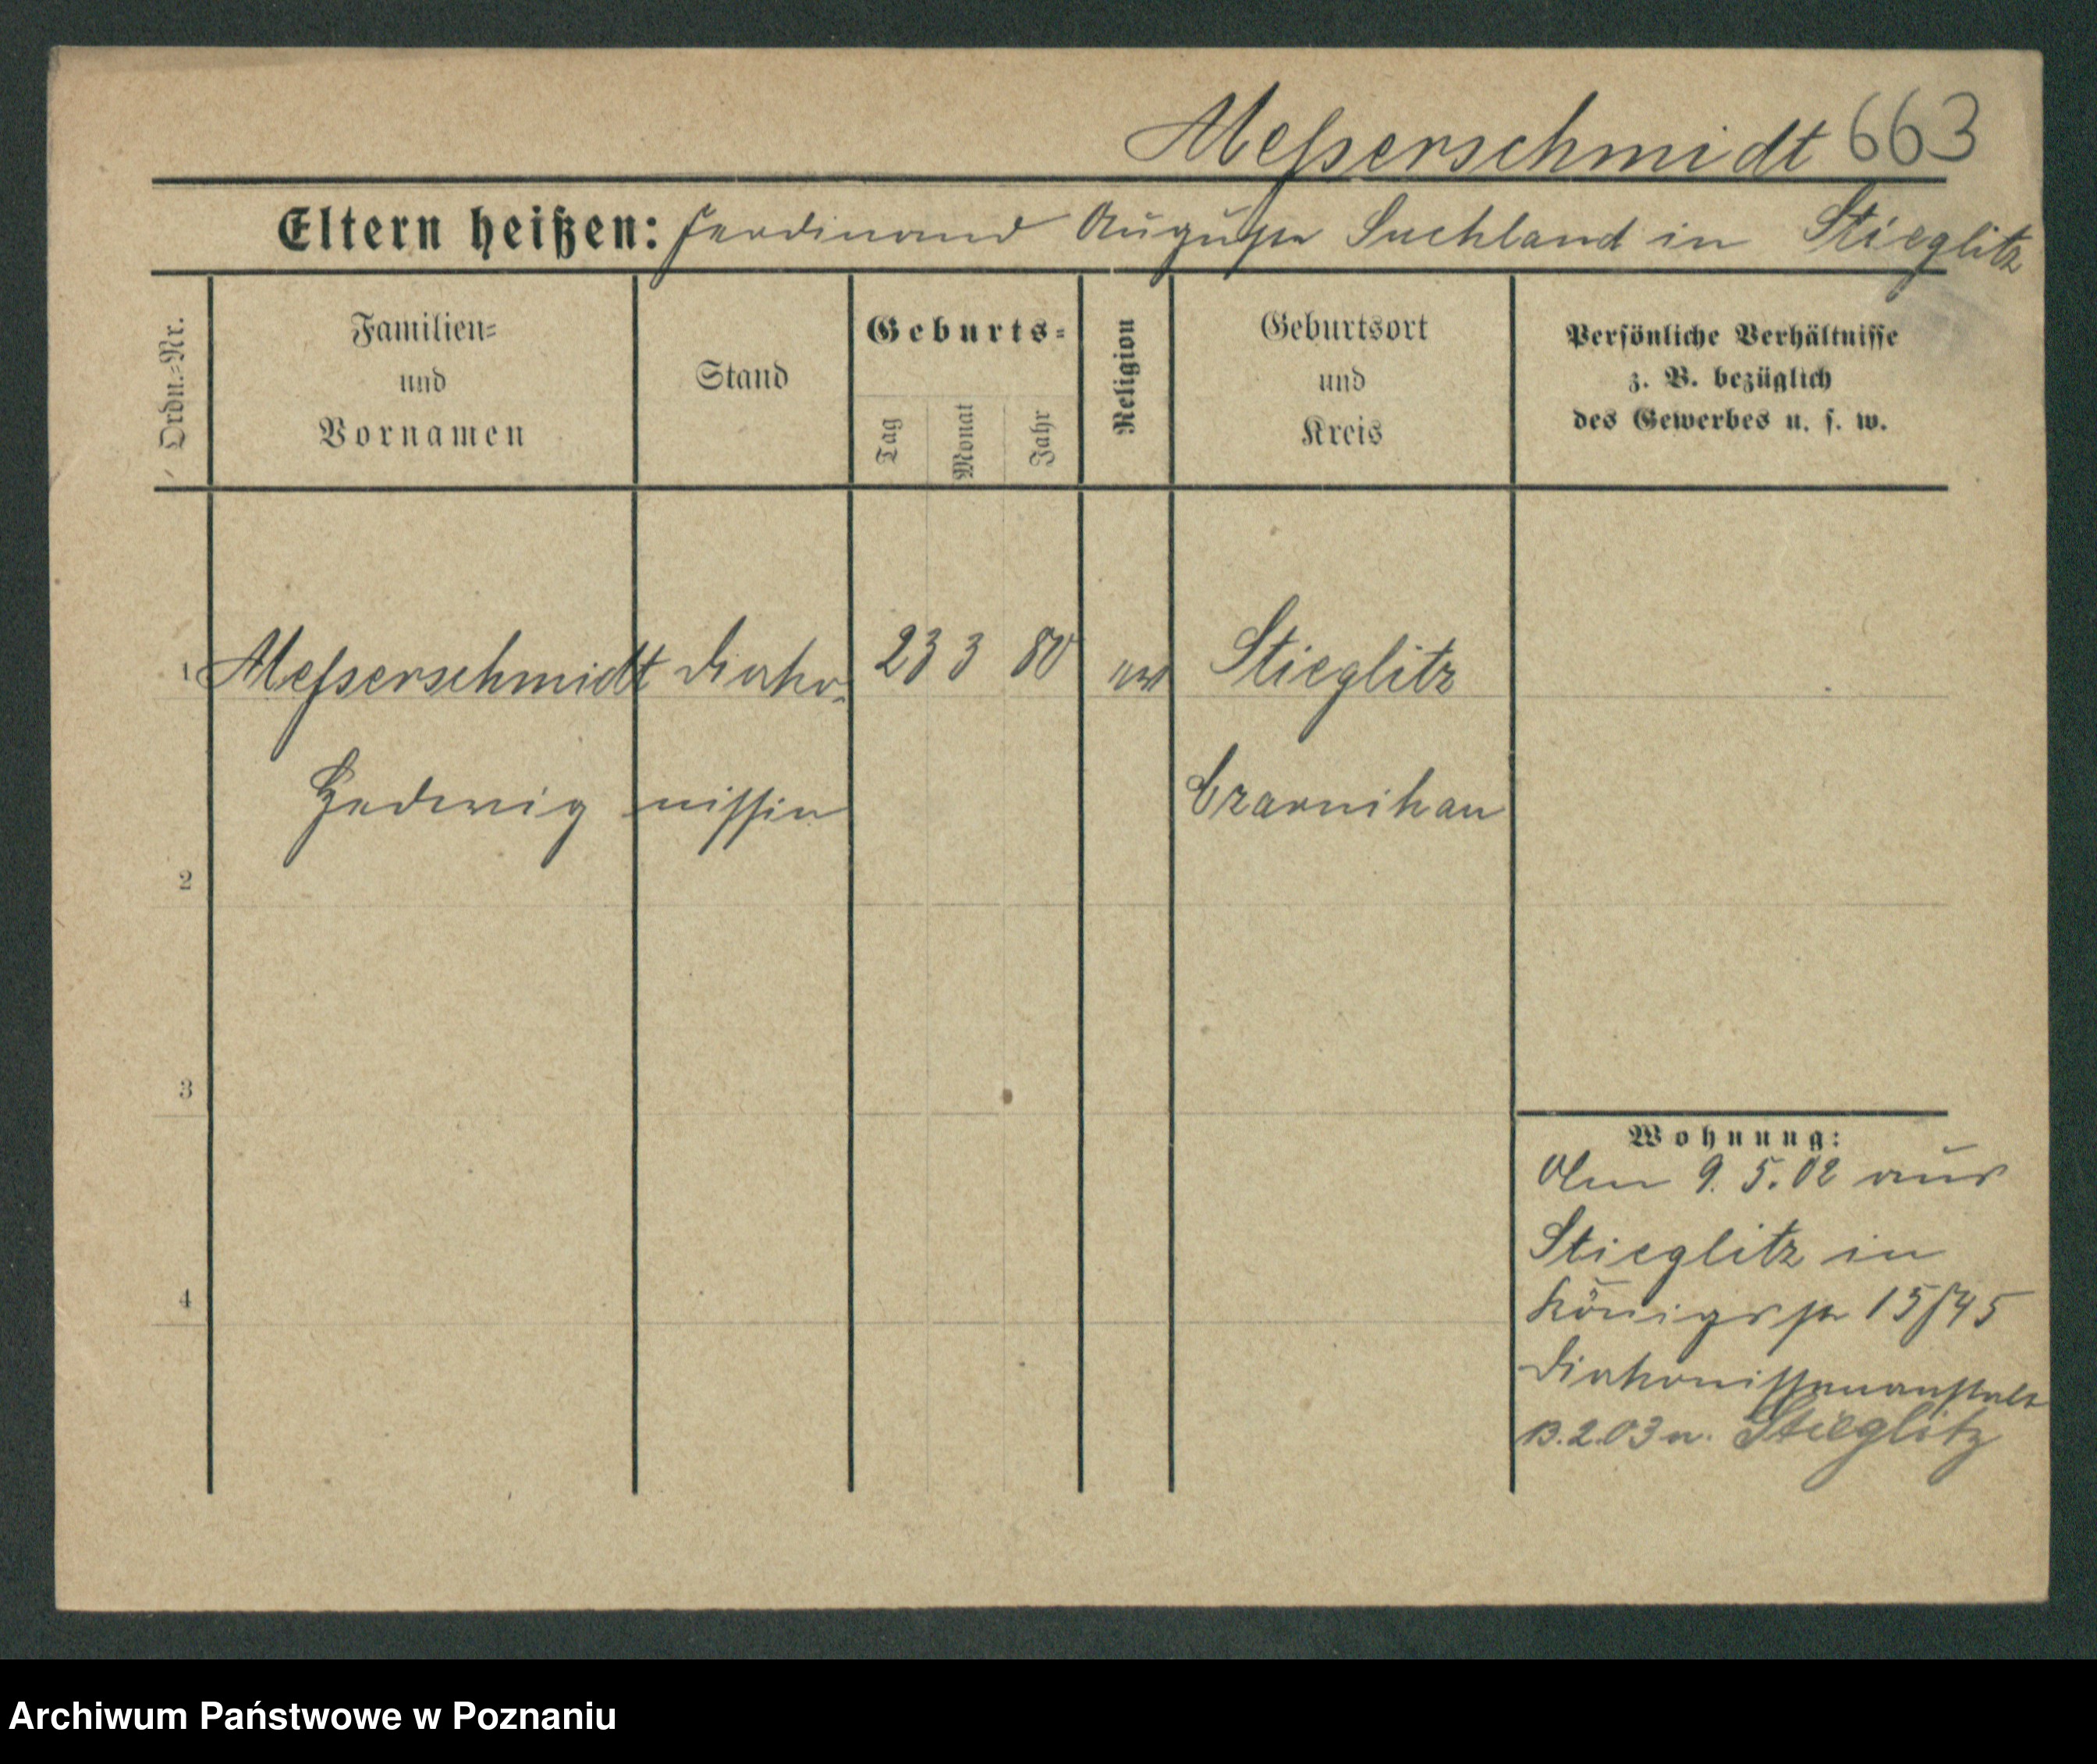 Messerschmidt 663
Eltern heißen: Ferdinand Auguste Suchland in Stieglitz
Ordn.=Nr.
Familien=
und
Vornamen
Stand
Geburts=
Tag
Monat
Jahr
Religion
Geburtsort
und
Kreis
Persönliche Verhältnisse
z. B. bezüglich
des Gewerbes u. s. w.
1 Messerschmidt Diako- 23 3 80 ev Stieglitz
Hedwig nissin Czarnikau
2
3
4
Wohnung:
Am 9. 5. 02 aus
Stieglitz in
Königsstr 15/45
Diakonissenanstalt
13.2.03 n. Stieglitz
Archiwum Państwowe w Poznaniu